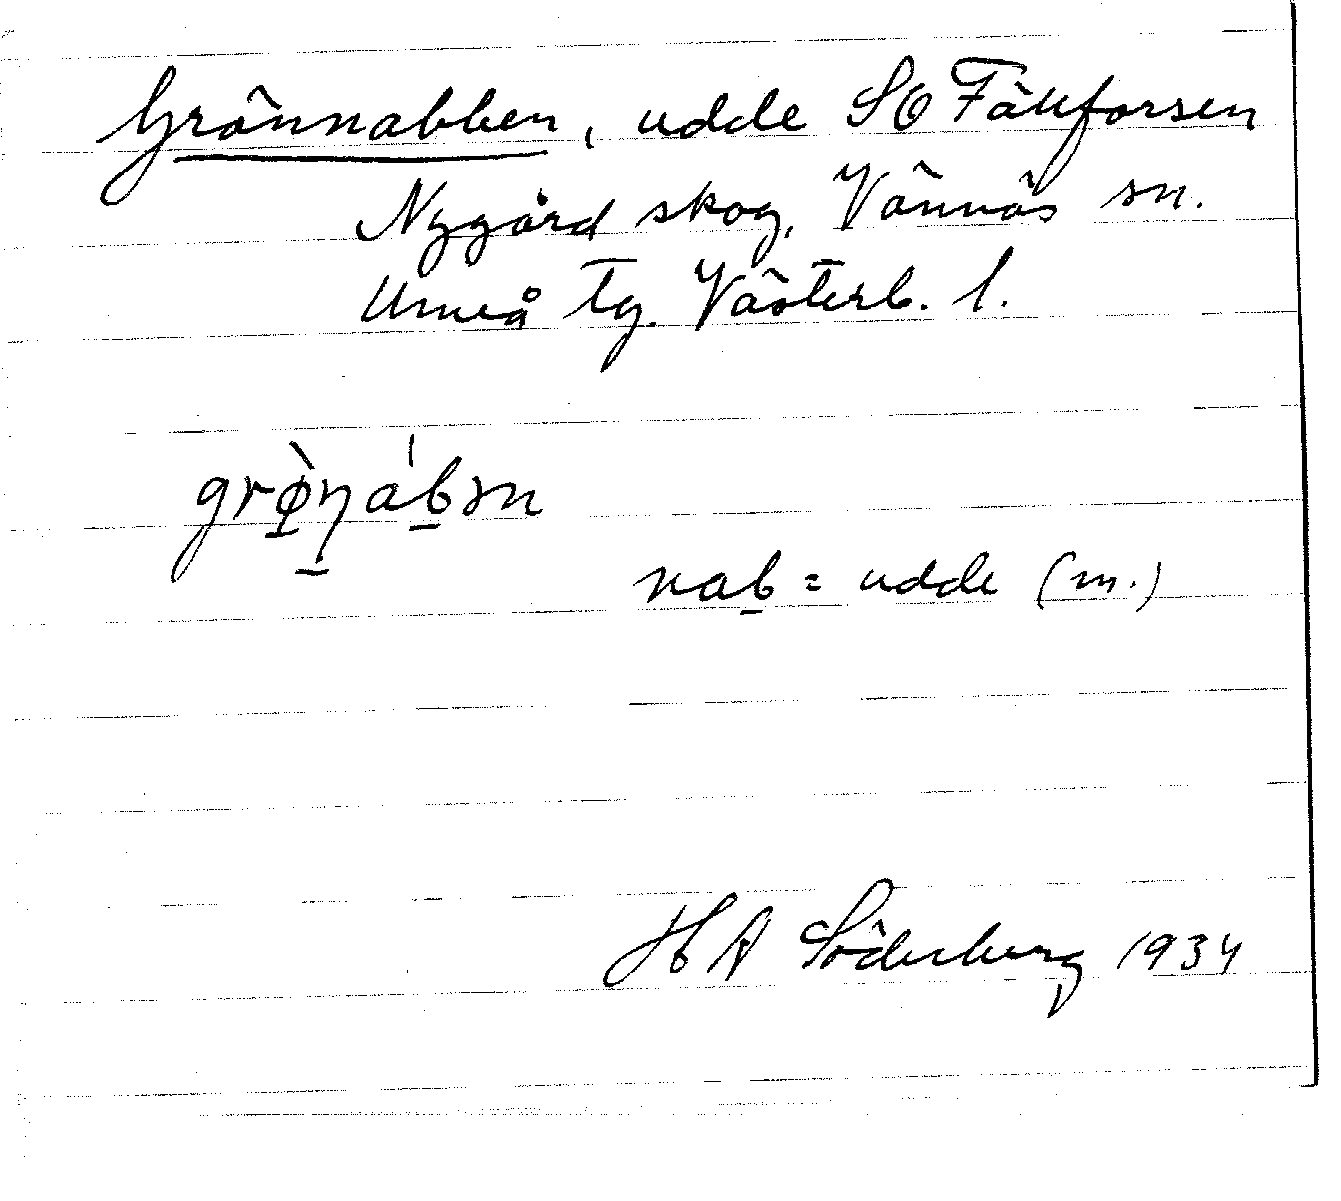 Grönnabben, udde SO Fällforsen
Nygård skog, Vännäs sn.
Umeå tg. Västerb. l.
grø̀ŋáb̲ən
nab̲ = udde (m.)
H A Söderberg 1934